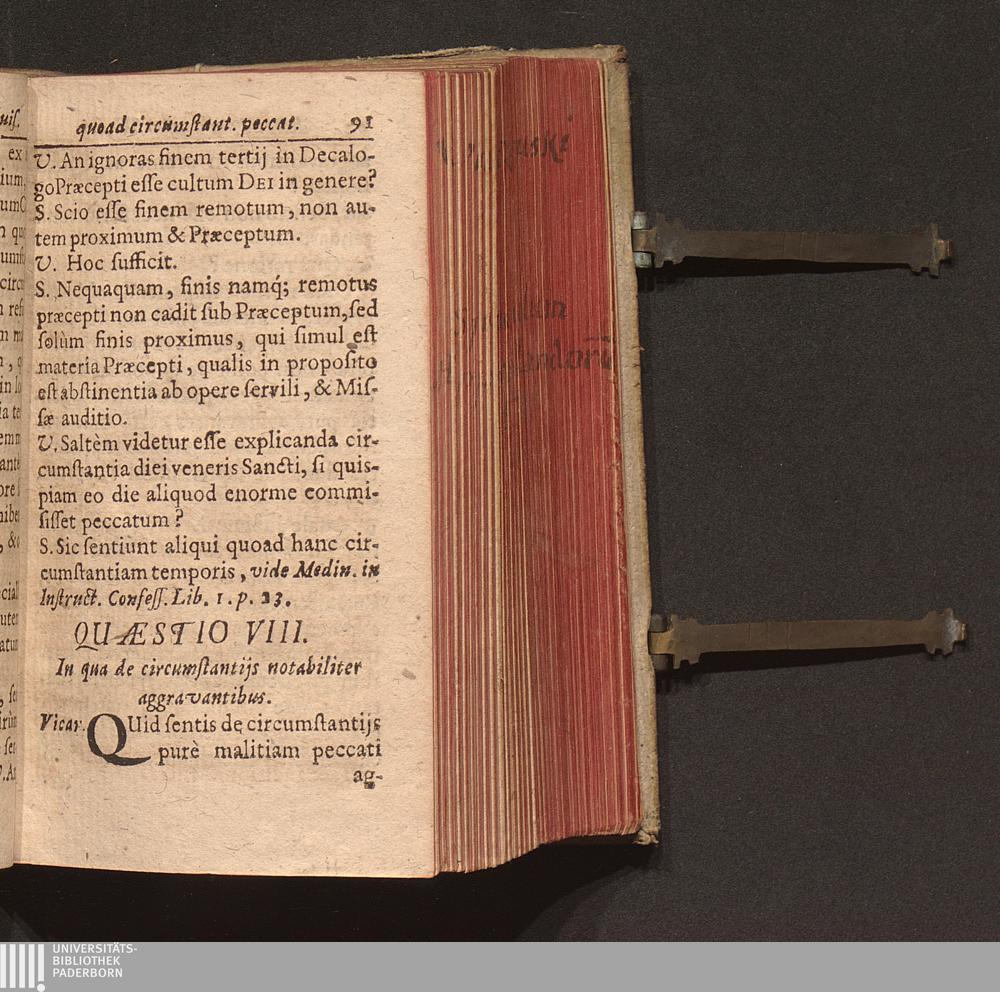 quoad circumſtant. peccat. 91
V. An ignoras finem tertij in Decalo-
go Præcepti eſſe cultum DEI in genere?
S. Scio eſſe finem remotum, non au-
tem proximum & Præceptum.
V. Hoc ſufficit.
S. Nequaquam, finis namq́; remotus
præcepti non cadit ſub Præceptum, ſed
ſolùm finis proximus, qui ſimul eſt
materia Præcepti, qualis in propoſito
eſt abſtinentia ab opere ſervili, & Miſ-
ſæ auditio.
V. Saltèm videtur eſſe explicanda cir-
cumſtantia diei veneris Sancti, ſi quis-
piam eo die aliquod enorme commi-
ſiſſet peccatum?
S. Sic ſentiunt aliqui quoad hanc cir-
cumſtantiam temporis, vide Medin. in
Inſtruct. Confeſſ. Lib. 1. p. 23.
QUÆSTIO VIII.
In qua de circumſtantijs notabiliter
aggravantibus.
Vicar. QUid ſentis de circumſtantijs
purè malitiam peccati
ag-
UNIVERSITÄTS-
BIBLIOTHEK
PADERBORN